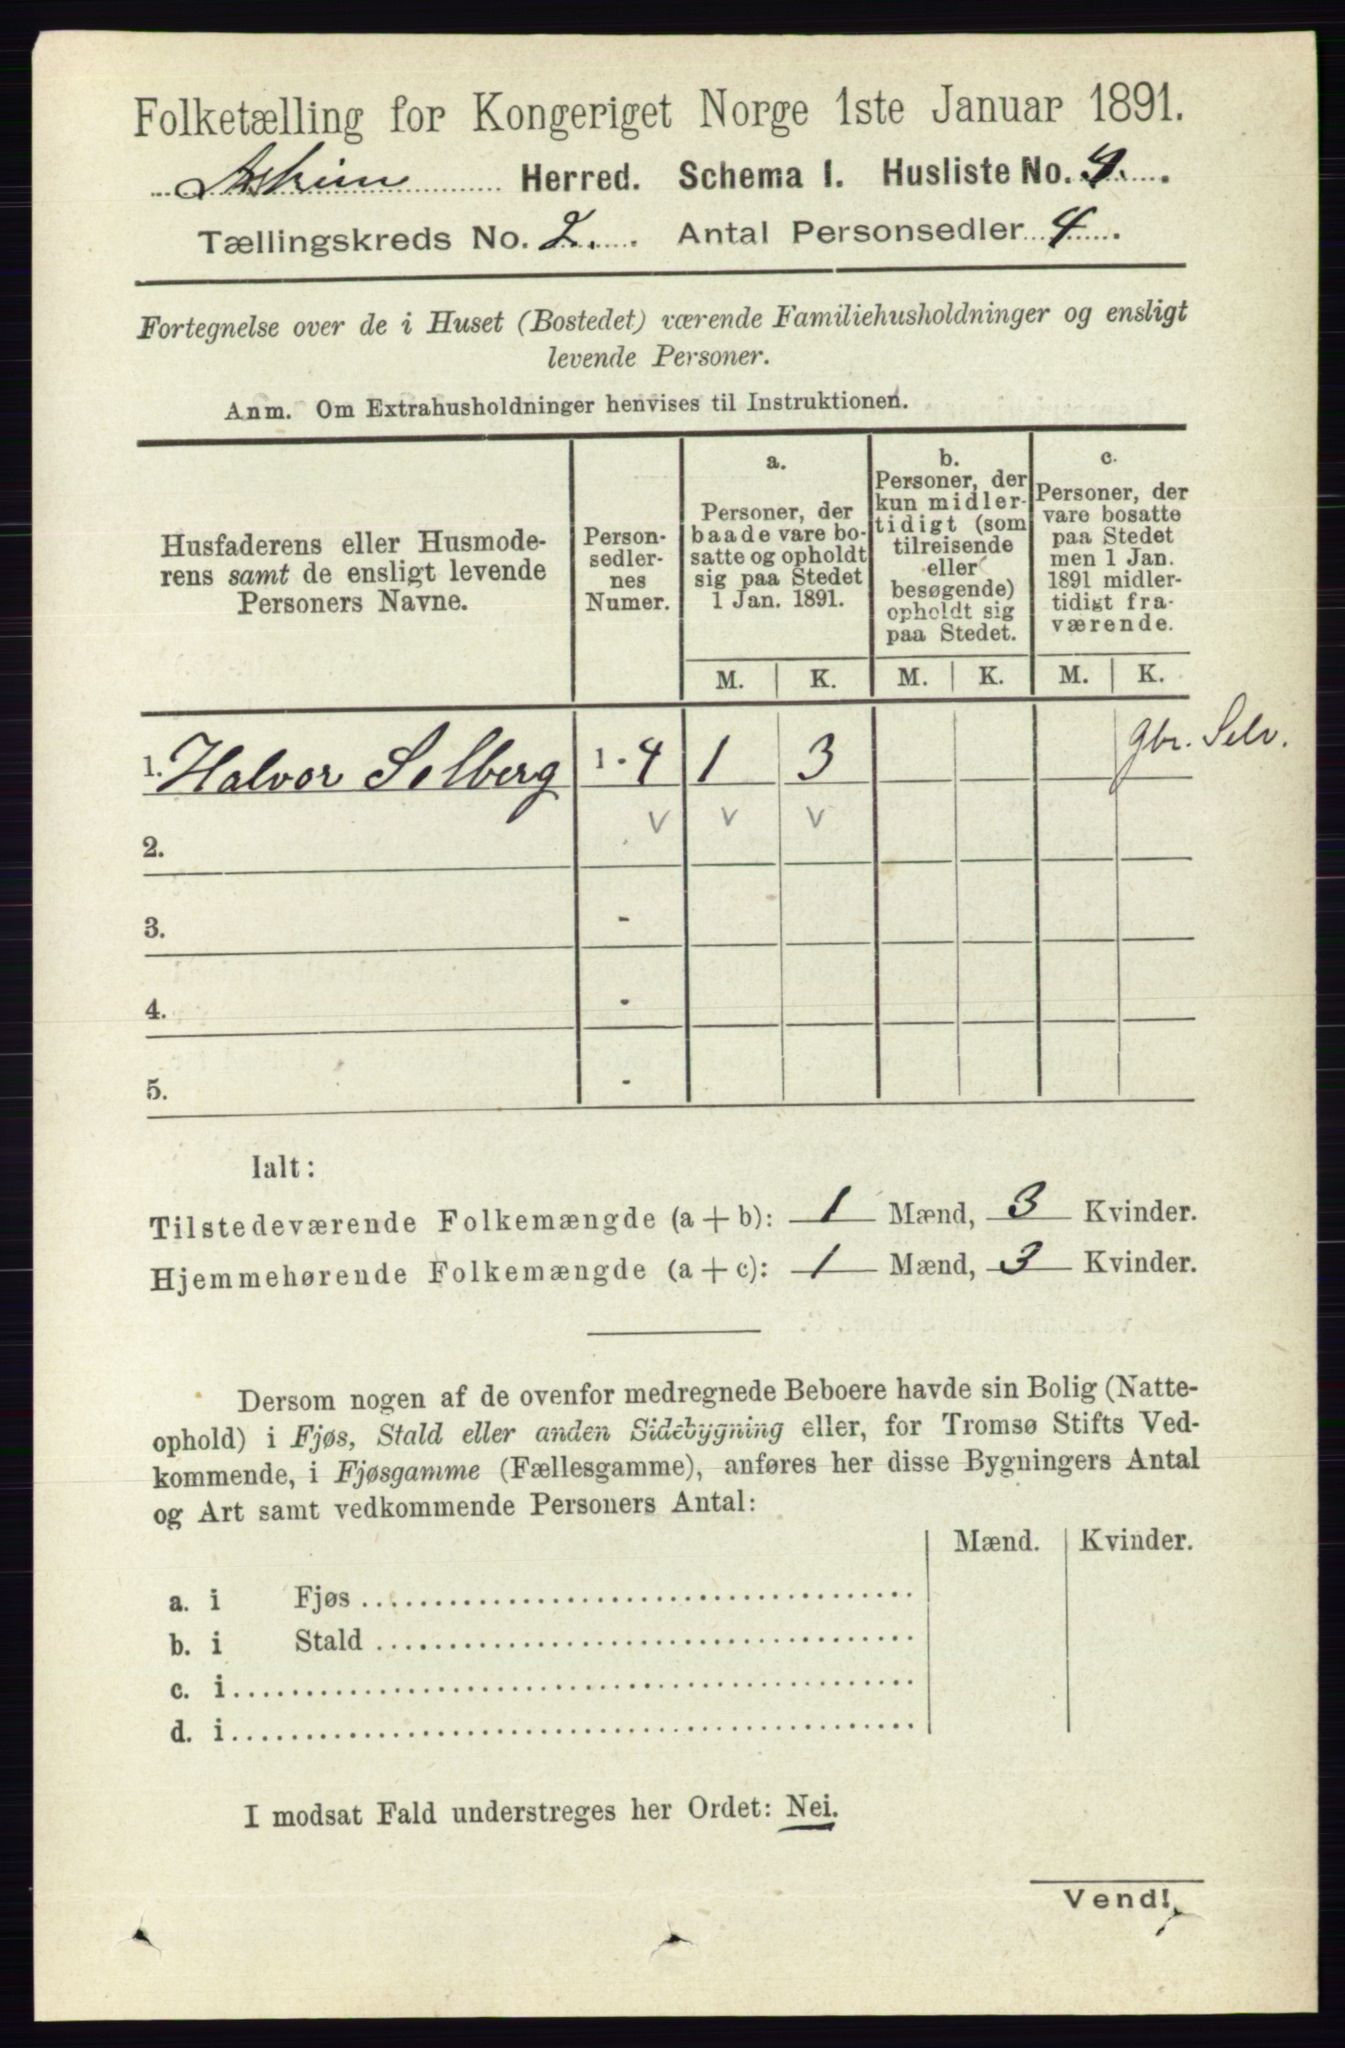 Folketælling for Kongeriget Norge 1ste Januar 1891.
Askim Herred. Schema I. Husliste No. 9.
Tællingskreds No. 2. Antal Personsedler 4.
Fortegnelse over de i Huset (Bostedet) værende Familiehusholdninger og ensligt
levende Personer.
Anm. Om Extrahusholdninger henvises til Instruktionen.
Husfaderens eller Husmode-
rens samt de ensligt levende
Personers Navne.
Person-
sedler-
nes
Numer.
a.
Personer, der
baade vare bo-
satte og opholdt
sig paa Stedet
1 Jan. 1891.
b.
Personer, der
kun midler-
tidigt (som
tilreisende
eller
besøgende)
opholdt sig
paa Stedet.
c.
Personer, der
vare bosatte
paa Stedet
men 1 Jan.
1891 midler-
tidigt fra-
værende.
M. K. M. K. M. K.
1. Halvor Solberg 1 - 4 1 3 gbr. Selv.
v v v
2.
3. -
4. -
5. -
Ialt:
Tilstedeværende Folkemængde (a + b): 1 Mænd, 3 Kvinder.
Hjemmehørende Folkemængde (a + c): 1 Mænd, 3 Kvinder.
Dersom nogen af de ovenfor medregnede Beboere havde sin Bolig (Natte-
ophold) i Fjøs, Stald eller anden Sidebygning eller, for Tromsø Stifts Ved-
kommende, i Fjøsgamme (Fællesgamme), anføres her disse Bygningers Antal
og Art samt vedkommende Personers Antal:
Mænd. Kvinder.
a. i Fjøs
b. i Stald
c. i
d. i
I modsat Fald understreges her Ordet: Nei.
Vend!